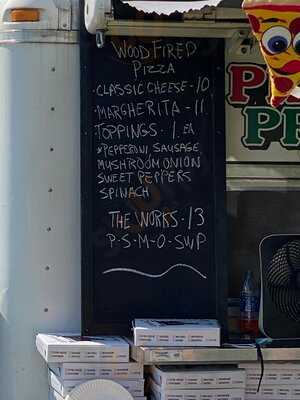 WOOD FIRED
PIZZA
CLASSIC CHEESE - 10
· MARGHERITA - 11
· TOPPINGS · 1. EA
*PEPPERONI, SAUSAGE,
MUSHROOM ONION
SWEET PEPPERS
SPINACH
THE WORKS - 13
P-S-M-O-SWP